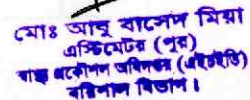 মোঃ আবু বাসেদ মিয়া
এস্টিমেটর (পুর)
স্বাস্থ্য প্রকৌশল অধিদপ্তর (এইচইডি)
বরিশাল বিভাগ।